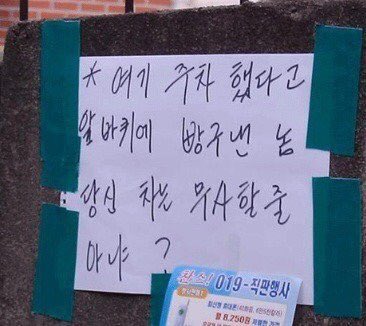 * 여기 주차 했다고
앞바퀴에 빵구낸 놈
당신 차는 무사할줄
아냐 ?
찬스! 019-직판행사
월 8,250원